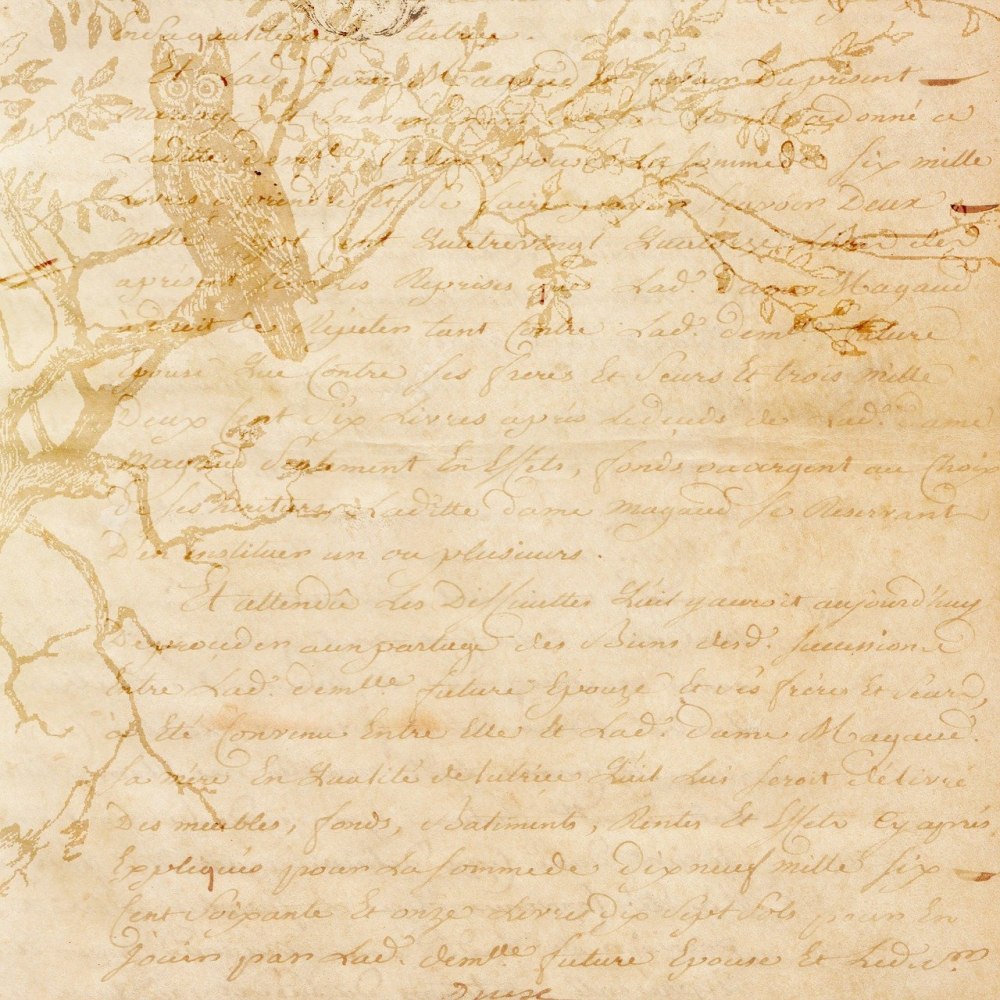 en sa qualité de tutrice.
Et Lad. Dame Magaud En faveur Du présent
mariage donné a
Laditte Demlle future Epouse La Somme de six mille
Livres a prendre et Se Scavoir Deux
mille Sept Cent Quatrevingt Quatorze Livres
apris Sur Les Reprises que Lad. Dame Magaud
a droit de Rejetter tant Contre Lad. demlle future
Epouse Que Contre ses freres Et Seurs Et trois mille
Deux Cent Six Livres après Le déces de Lad. Dame
Magaud Seulement En Effets, fonds ou argent au Choix
De ses heritiers, Laditte dame magaud se Reservant
D'en instituer un ou plusieurs.
Et attendu Les Difficultes Quil y auroit aujourd'huy
De proceder a un partage des Biens desd. succession
Entre Lad. demlle future Epouze Et ses freres Et seurs,
a Eté Convenu Entre Elle Et Lad. Dame Magaud.
Sa mère En Qualité de tutrice Quil Lui seroit délivré
Des meubles, fonds, Batiments, Rentes Et Effets Cy après
Expliqués pour La somme de Dix neuf mille six
Cent Soixante Et onze Livres Dix Sept Sols pour En
Jouir par Lad. demlle future Epouse Et Led.